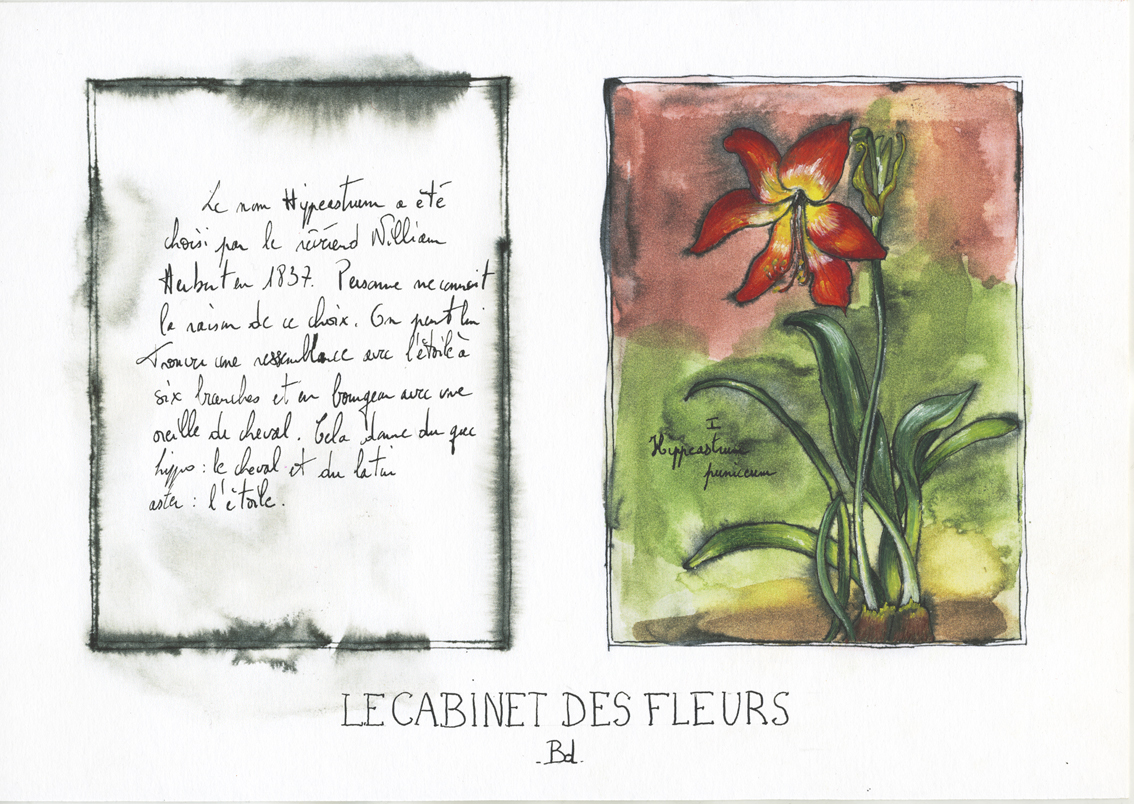 Le nom Hippeastrum a été
choisi par le révérend William
Herbert en 1837. Personne ne connait
la raison de ce choix. On peut lui
trouver une ressemblance avec l'étoile à
six branches et en bourgeon avec une
oreille de cheval. Cela donne du grec
hippo : le cheval et du latin
aster : l'étoile.
I
Hippeastrum
puniceum
LE CABINET DES FLEURS
.Bd.